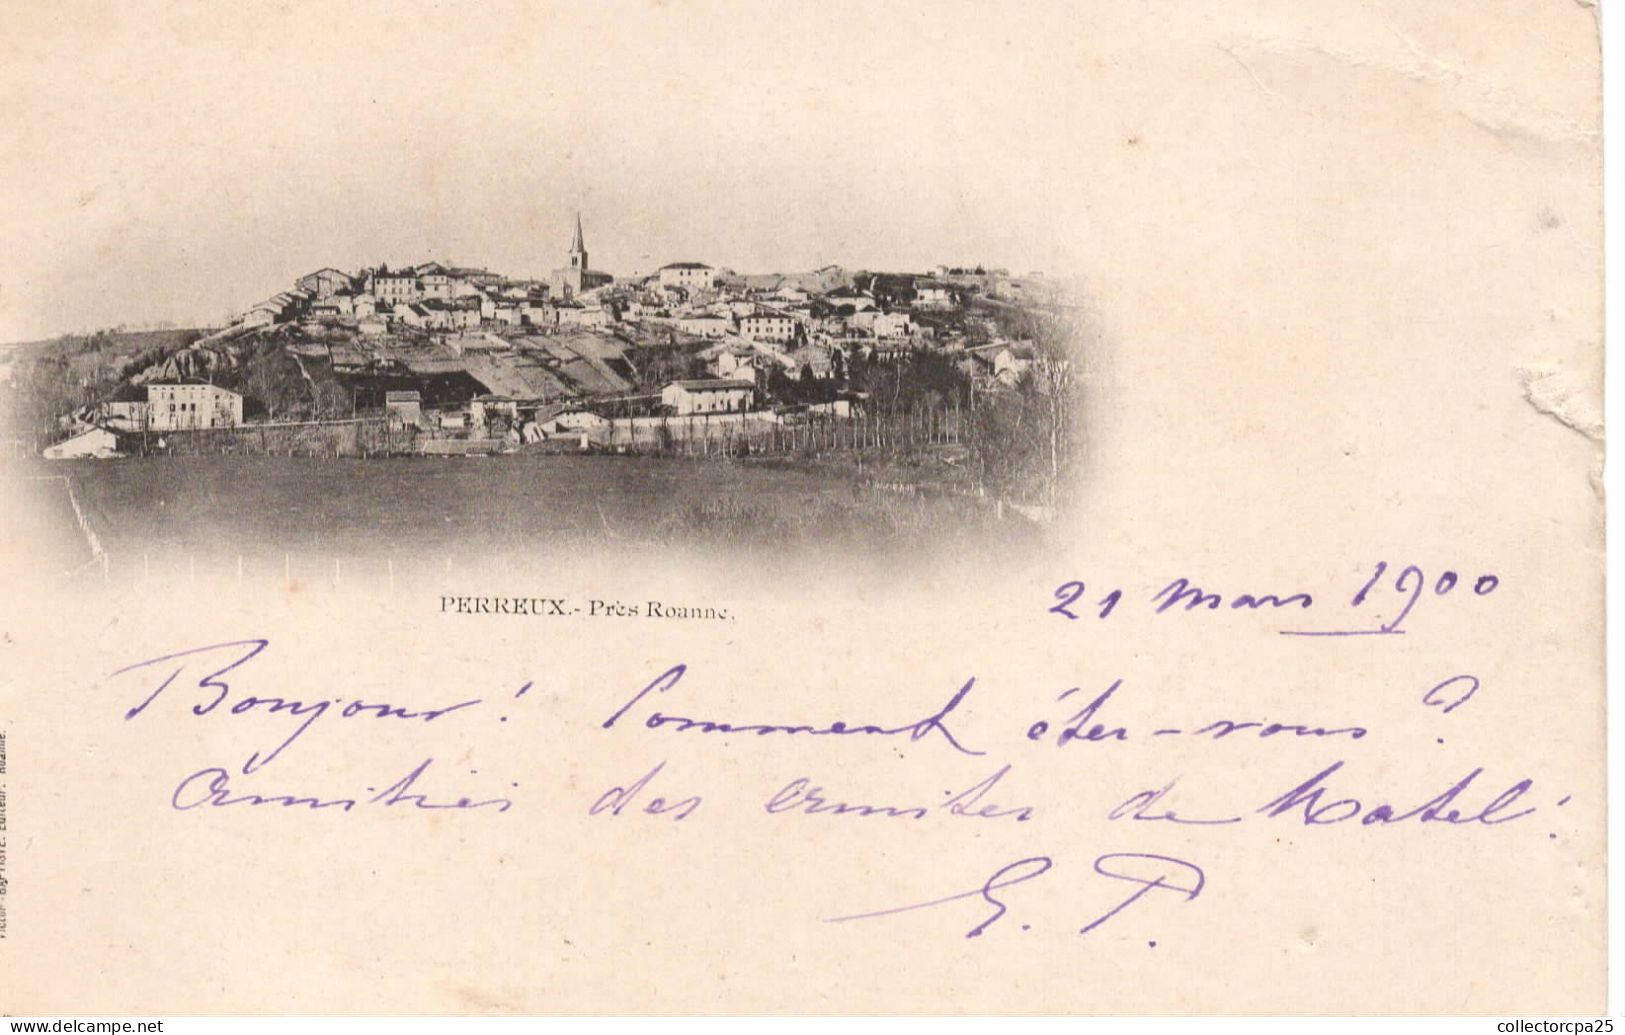 PERREUX.- Près Roanne.
21 Mars 1900
Bonjour ! Comment êtes-vous ?
Amitiés des ermites de Matel !
G. P.
VICTOR-BAPTISTE. Editeur. Roanne.
collectorcpa25
www.delcampe.net